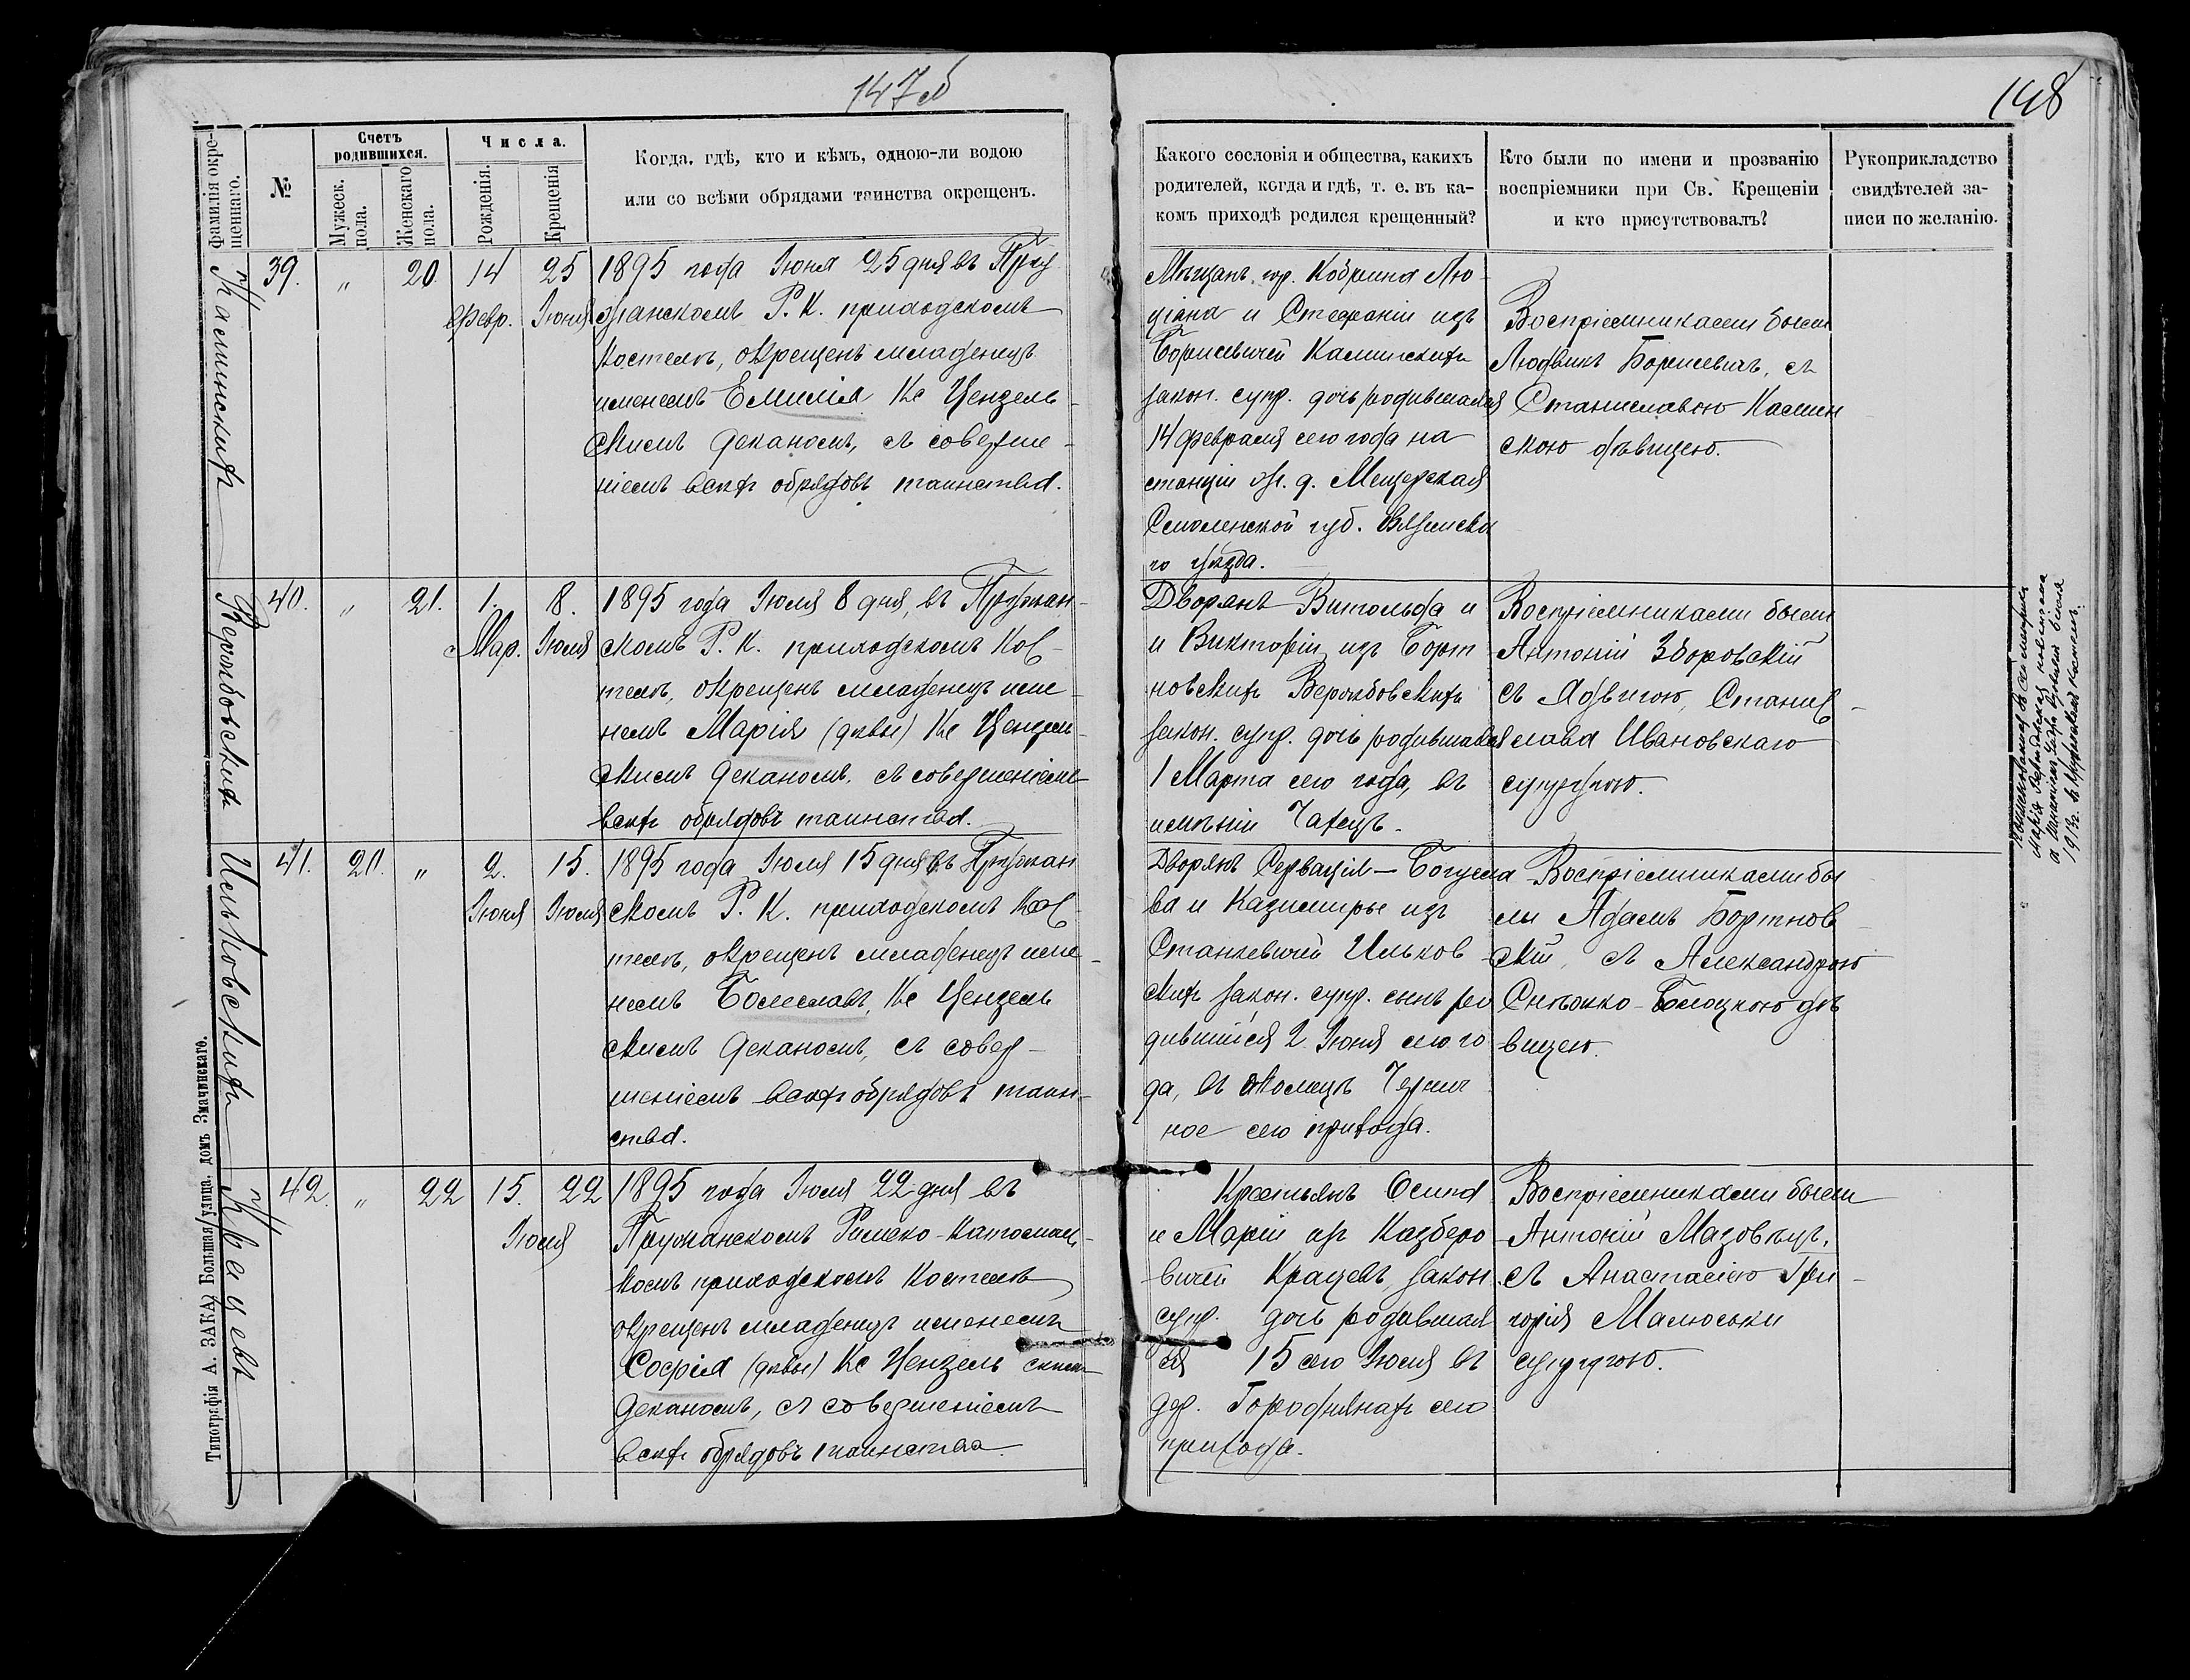 147 об
148
Фамилія окре-
щеннаго.
№
Счетъ
родившихся.
Мужеск.
пола.
Женскаго
пола.
Числа.
Рожденія.
Крещенія
Когда, гдѣ, кто и кѣмъ, одною-ли водою
или со всѣми обрядами таинства окрещенъ.
Какого сословія и общества, какихъ
родителей, когда и гдѣ, т. е. въ ка-
комъ приходѣ родился крещенный?
Кто были по имени и прозванію
воспріемники при Св. Крещеніи
и кто присутствовалъ?
Рукоприкладство
свидѣтелей за-
писи по желанію.
Каминскихъ
39.
"
20.
14
Февр.
25
Іюня
1895 года Іюня 25 дня въ Пру
жанскомъ Р. К. приходскомъ
костелѣ, окрещенъ младенецъ
именемъ Емилія Кс Цензель-
скимъ Деканомъ, съ соверше-
ніемъ всехъ обрядовъ таинства.
Мѣщанъ гор. Кобрина Лю-
ціана и Стефаніи изъ
Борисевичей Каминскихъ
закон. супр. дочь родившаяся
14 февраля сего года на
станціи ж. д. Мещерская
Смоленской губ. Вяземска
го уѣзда.
Воспріемниками были
Людвикъ Борисевичъ, съ
Станиславою Камин
скою дѣвицею.
Верожбовскихъ
40.
"
21.
1.
Мар.
8.
Іюля
1895 года Іюля 8 дня, въ Пружан-
скомъ Р. К. приходскомъ Кос-
телѣ, окрещенъ младенецъ име-
немъ Марія (двѣ) Кс Цензель-
скимъ Деканомъ, съ совершеніемъ
всехъ обрядовъ таинства.
Дворянъ Витольда и
и Викторіи изъ Борт
новскихъ Верожбовскихъ
закон. супр. дочь родившаяся
1 Марта сего года, въ
имѣніи Чахецъ.
Воспріемниками были
Антоній Зборовскій
съ Ядвигою, Станис-
лава Ивановскаго
супругою.
1913г. въ Пружанскомъ костелѣ
Ильковскихъ
41.
20.
"
2.
Іюня
15.
Іюля
1895 года Іюля 15 дня въ Пружан
скомъ Р. К. приходскомъ Кос-
телѣ, окрещенъ младенецъ име-
немъ Болеславъ, Кс Цензель
скимъ Деканомъ, съ совер-
шеніемъ всехъ обрядовъ таин-
ства.
Дворянъ Сервація-Богусла
ва и Казимиры изъ
Станкевичей Ильков
скихъ закон. супр. сынъ ро
дившійся 2 Іюня сего го
да, въ околицѣ Чернич
ное сего прихода.
Воспріемниками бы
лы Адамъ Бортнов
скій, съ Александрою
Снѣжко-Блоцкою дѣ
вицею.
Крацевъ
42
"
22
15.
Іюля
22
1895 года Іюля 22 дня въ
Пружанскомъ Римско-Католичес-
комъ приходскомъ костелѣ
окрещенъ младенецъ именемъ
Софія (двѣ) Кс Цензель скимъ
Деканомъ, съ совершеніемъ
всехъ обрядовъ таинства
Крестьянъ Осипа
и Маріи изъ Казберо
вичей Крацевъ закон.
супр. дочь родившая
ся 15 сего Іюля въ
дер. Городнянахъ сего
прихода.
Воспріемниками были
Антоній Мазовѣцъ,
съ Анастасіею Гри-
горія Малюськи
супругою.
Типографія А. ЗАКА, Большая улица, домъ Змачинскаго.